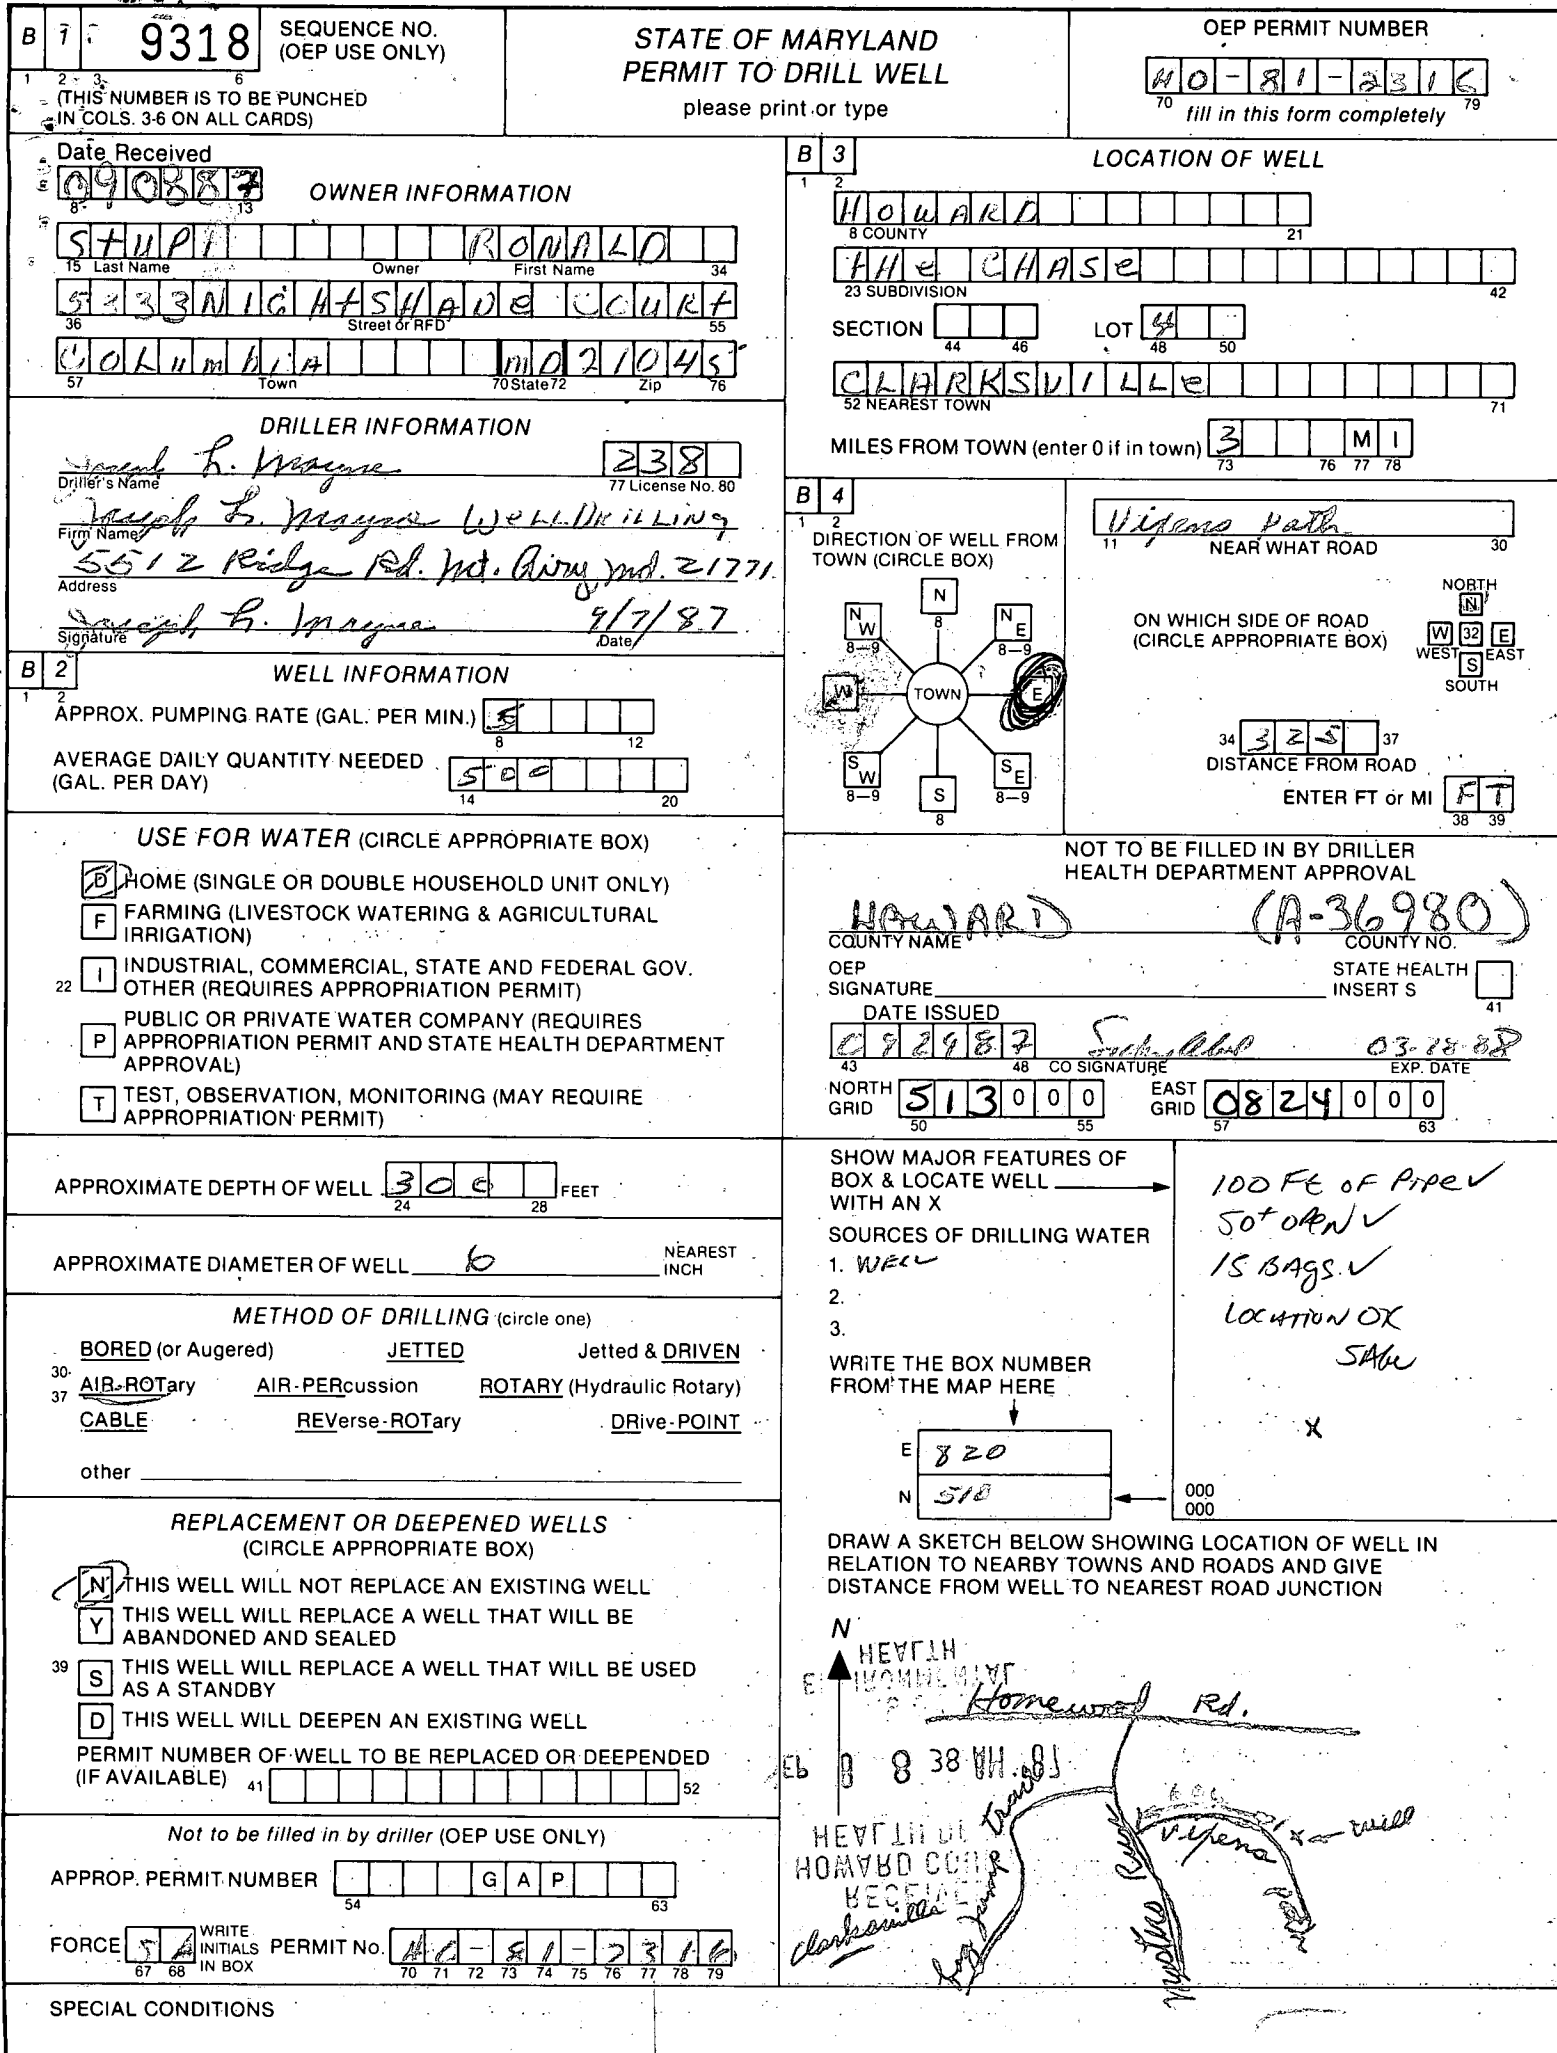 B 1 9318 SEQUENCE NO. (OEP USE ONLY)
1 2 3 6
(THIS NUMBER IS TO BE PUNCHED IN COLS. 3-6 ON ALL CARDS)
STATE OF MARYLAND
PERMIT TO DRILL WELL
please print or type
OEP PERMIT NUMBER
HO-81-2316
70 79
fill in this form completely
Date Received
090887
8 13
OWNER INFORMATION
STUPI RONALD
15 Last Name Owner First Name 34
5233 NIGHTSHADE COURT
36 Street or RFD 55
COLUMBIA MD 21045
57 Town 70 State 72 Zip 76
DRILLER INFORMATION
Joseph L. Mayne 238
Driller's Name 77 License No. 80
Joseph L. Mayne WELL DRILLING
Firm Name
5512 Ridge Rd. Mt. Airy, Md. 21771
Address
Joseph L. Mayne 9/7/87
Signature Date
B 2 WELL INFORMATION
1 2
APPROX. PUMPING RATE (GAL. PER MIN.) 5
8 12
AVERAGE DAILY QUANTITY NEEDED
(GAL. PER DAY) 500
14 20
USE FOR WATER (CIRCLE APPROPRIATE BOX)
D HOME (SINGLE OR DOUBLE HOUSEHOLD UNIT ONLY)
F FARMING (LIVESTOCK WATERING & AGRICULTURAL
IRRIGATION)
22 I INDUSTRIAL, COMMERCIAL, STATE AND FEDERAL GOV.
OTHER (REQUIRES APPROPRIATION PERMIT)
P PUBLIC OR PRIVATE WATER COMPANY (REQUIRES
APPROPRIATION PERMIT AND STATE HEALTH DEPARTMENT
APPROVAL)
T TEST, OBSERVATION, MONITORING (MAY REQUIRE
APPROPRIATION PERMIT)
APPROXIMATE DEPTH OF WELL 300 FEET
24 28
APPROXIMATE DIAMETER OF WELL 6 NEAREST INCH
METHOD OF DRILLING (circle one)
BORED (or Augered) JETTED Jetted & DRIVEN
30-37 AIR-ROTary AIR-PERcussion ROTARY (Hydraulic Rotary)
CABLE REVerse-ROTary DRive-POINT
other
REPLACEMENT OR DEEPENED WELLS
(CIRCLE APPROPRIATE BOX)
N THIS WELL WILL NOT REPLACE AN EXISTING WELL
Y THIS WELL WILL REPLACE A WELL THAT WILL BE
ABANDONED AND SEALED
39 S THIS WELL WILL REPLACE A WELL THAT WILL BE USED
AS A STANDBY
D THIS WELL WILL DEEPEN AN EXISTING WELL
PERMIT NUMBER OF WELL TO BE REPLACED OR DEEPENDED
(IF AVAILABLE) 41 52
Not to be filled in by driller (OEP USE ONLY)
APPROP. PERMIT NUMBER G A P
54 63
FORCE SA WRITE INITIALS IN BOX PERMIT No. HO-81-2316
67 68 70 71 72 73 74 75 76 77 78 79
SPECIAL CONDITIONS
B 3 LOCATION OF WELL
1 2
HOWARD
8 COUNTY 21
THE CHASE
23 SUBDIVISION 42
SECTION LOT 4
44 46 48 50
CLARKSVILLE
52 NEAREST TOWN 71
MILES FROM TOWN (enter 0 if in town) 3 M I
73 76 77 78
B 4
1 2
DIRECTION OF WELL FROM
TOWN (CIRCLE BOX)
N 8
NW 8-9 NE 8-9
W TOWN E
SW 8-9 SE 8-9
S 8
Vipens Path
11 NEAR WHAT ROAD 30
ON WHICH SIDE OF ROAD
(CIRCLE APPROPRIATE BOX)
NORTH
N
W 32 E
WEST EAST
S
SOUTH
34 325 37
DISTANCE FROM ROAD
ENTER FT or MI FT
38 39
NOT TO BE FILLED IN BY DRILLER
HEALTH DEPARTMENT APPROVAL
HOWARD (A-36980)
COUNTY NAME COUNTY NO.
OEP SIGNATURE STATE HEALTH INSERT S
41
DATE ISSUED
092987 03-28-88
43 48 CO SIGNATURE EXP. DATE
NORTH GRID 513000 EAST GRID 0824000
50 55 57 63
SHOW MAJOR FEATURES OF
BOX & LOCATE WELL
WITH AN X
SOURCES OF DRILLING WATER
1. WELL
2.
3.
WRITE THE BOX NUMBER
FROM THE MAP HERE
E 820
N 518
100 Ft OF PIPE ✓
50+ OPEN ✓
15 BAGS ✓
LOCATION OK
X
000
000
DRAW A SKETCH BELOW SHOWING LOCATION OF WELL IN
RELATION TO NEARBY TOWNS AND ROADS AND GIVE
DISTANCE FROM WELL TO NEAREST ROAD JUNCTION
N
HEALTH
ENVIRONMENTAL
Homewood Rd.
SEP 8 8 38 AM '87
HEALTH
HOWARD COUN
RECEIVE
Clarksville
Log Jump Trail
Run
Vipens Path
x ← well